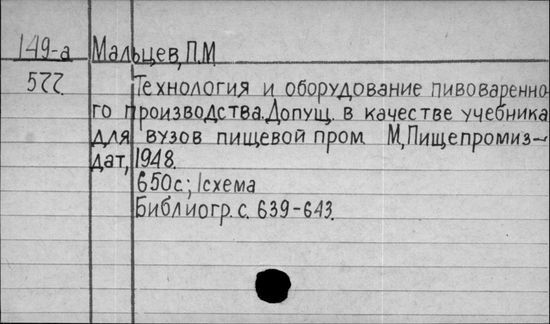 149-а Мальцев, П.М.
577 Технология и оборудование пивоваренно-
го производства. Допущ. в качестве учебника
для вузов пищевой пром М, Пищепромиз-
дат, 1948.
650с; 1схема
Библиогр. с. 639-643.